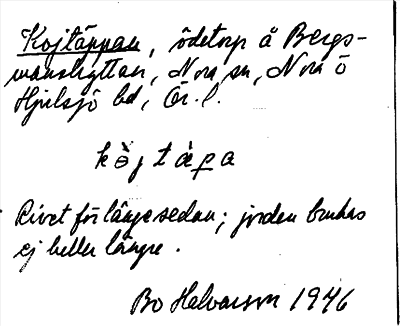 Kojtäppan, ödetorp å Bergs-
manshyttan, Nora sn, Nora o
Hjulsjö bd, Ör. l.
kòjtàpa
Rivet för länge sedan; jorden brukas
ej heller längre.
Bo Halvarson 1946